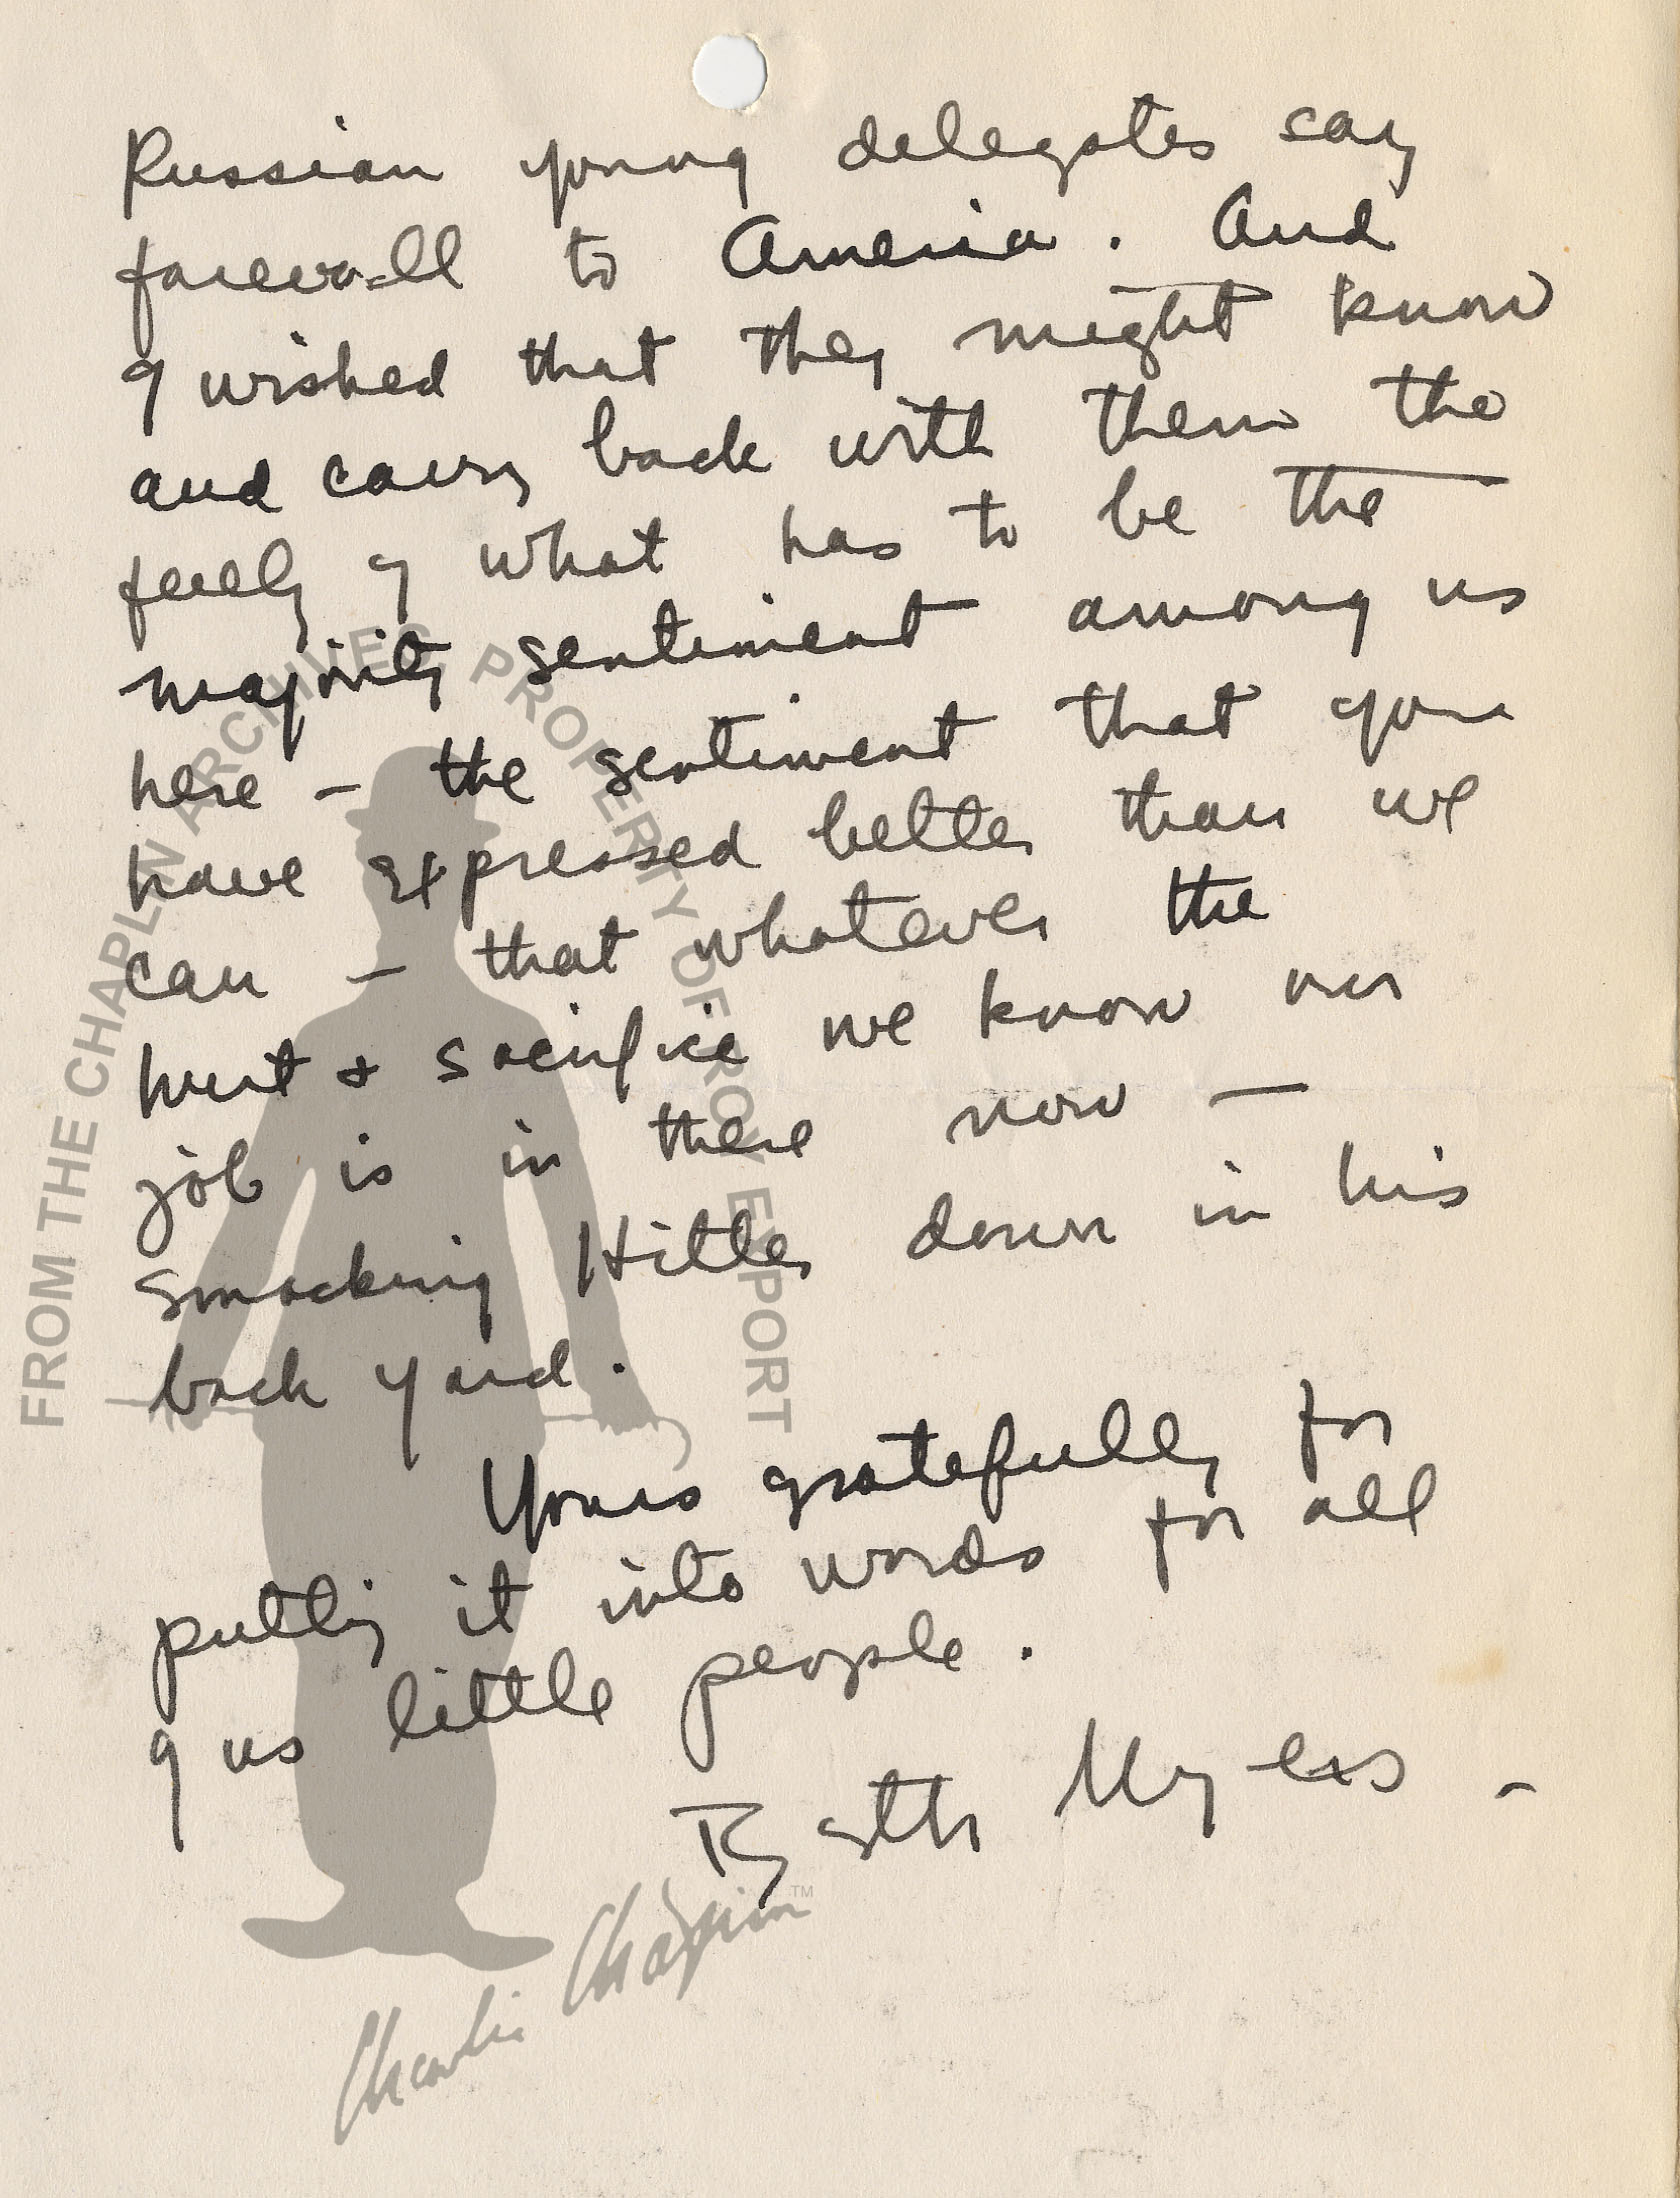 Russian young delegates say
farewell to America. And
I wished that they might know
and carry back with them the
feeling of what has to be the
majority sentiment among us
here – the sentiment that you
have expressed better than we
can – that whatever the
hurt & sacrifice we know our
job is in there now –
smacking Hitler down in his
back yard.
Yours gratefully for
putting it into words for all
of us little people.
Myers –
FROM THE CHAPLIN ARCHIVES, PROPERTY OF ROY EXPORT
Charlie Chaplin™